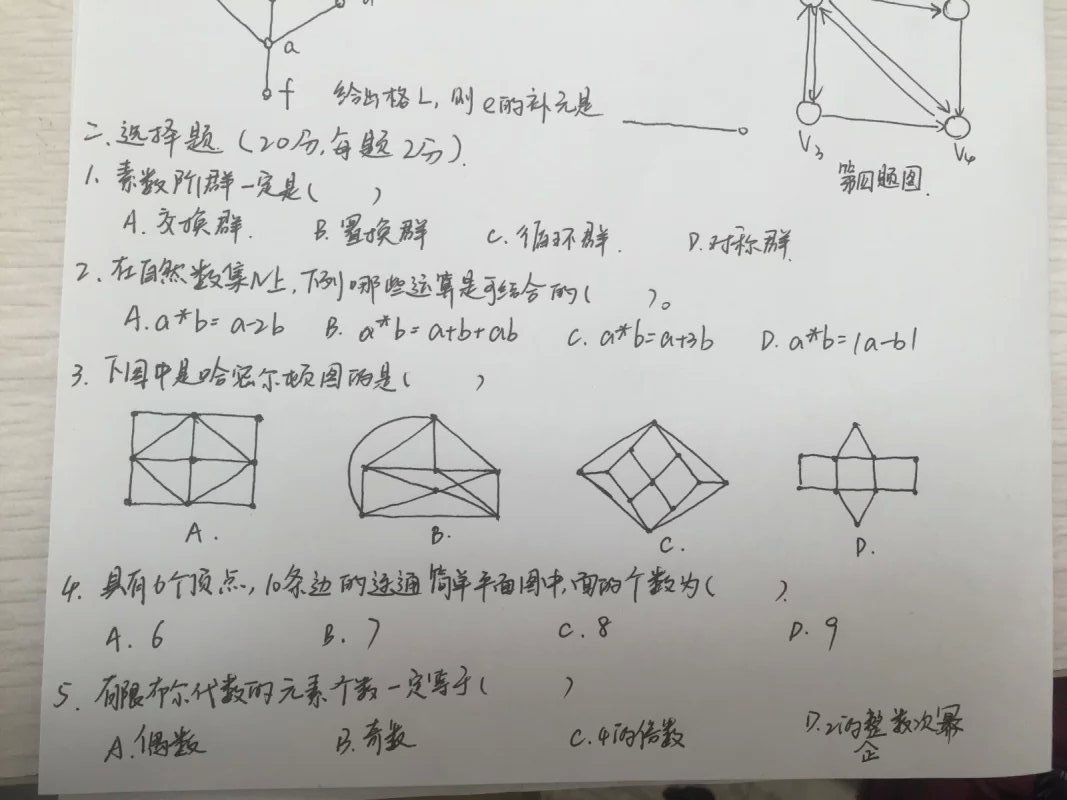 a
f 给出格L,则e的补元是 ____。
V3 V4
第四题图.
二、选择题.(20分,每题2分).
1、素数阶群一定是( )
A.交换群. B.置换群 C.循环群. D.对称群.
2、在自然数集N上,下列哪些运算是可结合的( )。
A.a*b=a-2b B. a*b=a+b+ab C. a*b=a+3b D. a*b=|a-b|
3、下图中是哈密尔顿图的是( )
A. B. C. D.
4、具有6个顶点,10条边的连通简单平面图中,面的个数为( ).
A. 6 B. 7 C. 8 D. 9
5、有限布尔代数的元素个数一定等于( )
A.偶数 B.奇数 C.4的倍数 D.2的整数次幂